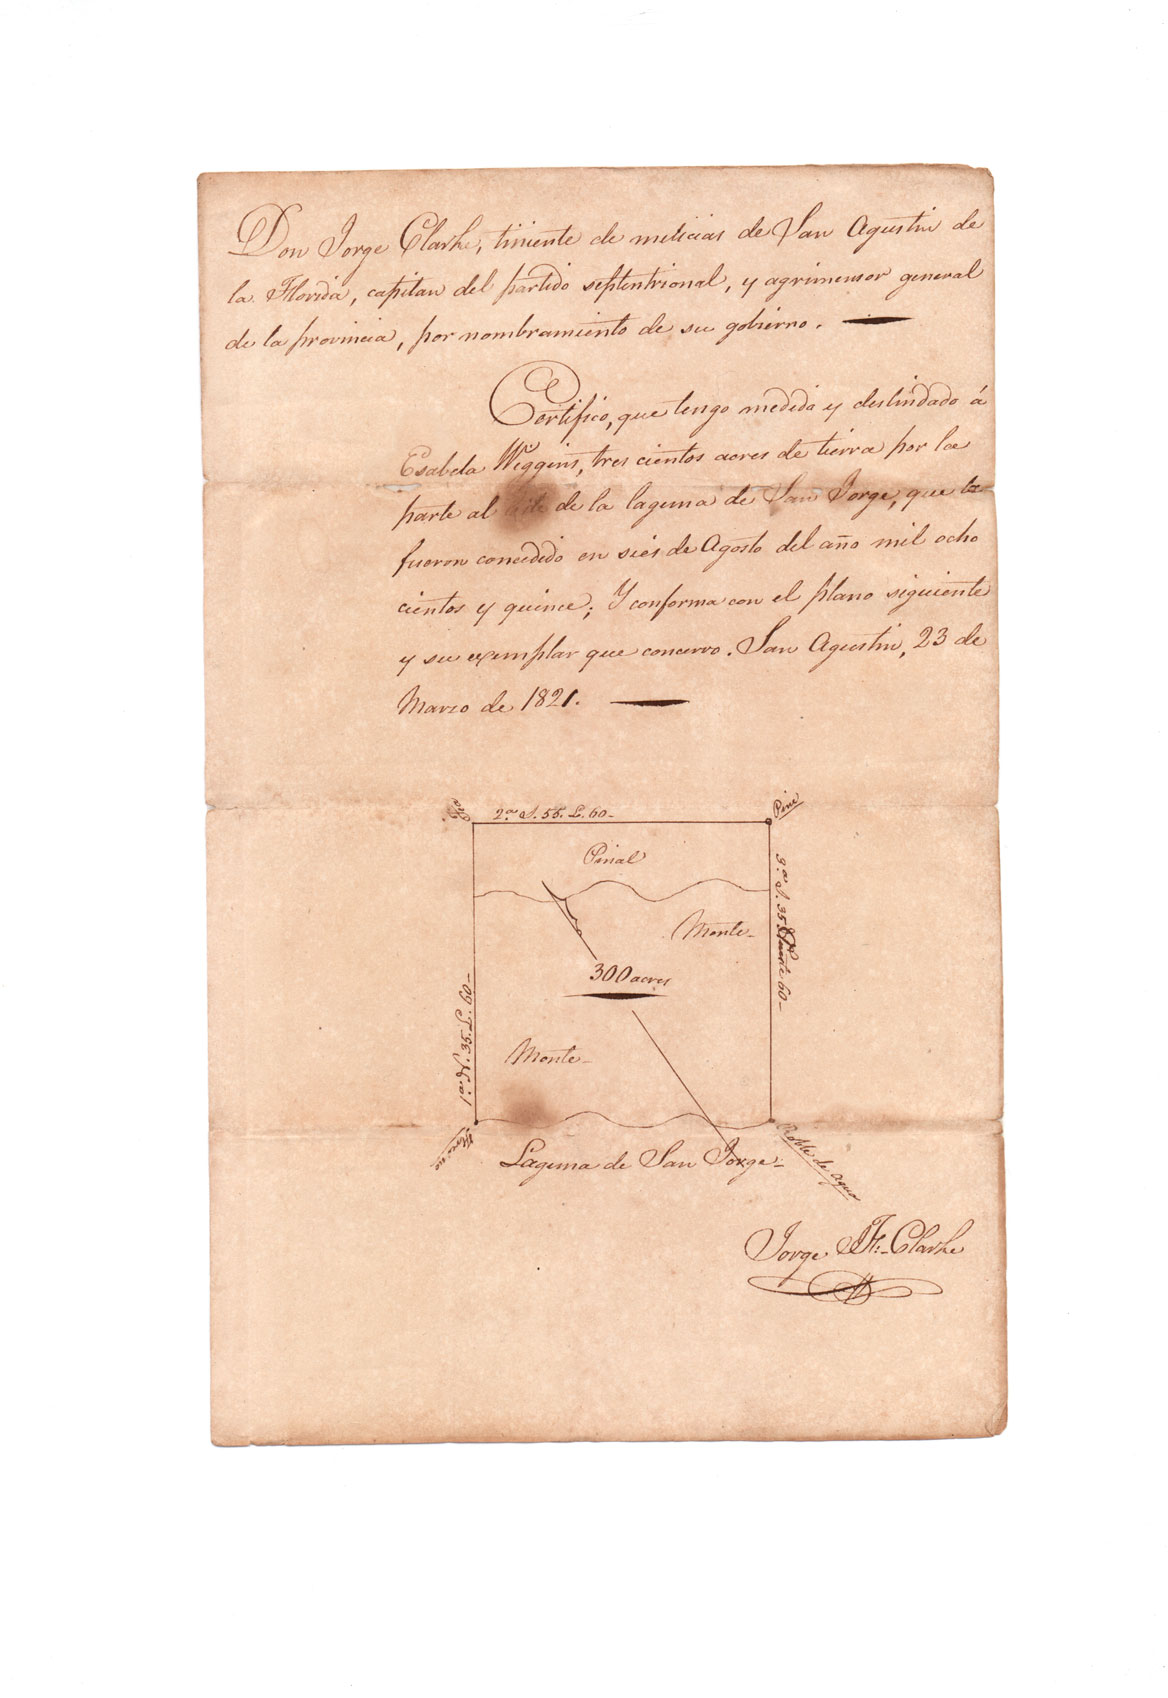 Don Jorge Clarke, tiniente de milicias de San Agustin de
la Florida, capitan del partido septentrional, y agrimensor general
de la provincia, por nombramiento de su gobierno.
Certifico, que tengo medida y deslindado á
Esabela Wiggins, tres cientos acres de tierra por la
parte al de la laguna de San Jorge, que le
fueron concedido en sies de Agosto del año mil ocho
cientos y quince; Y conforma con el plano siguiente
y su exemplar que concervo. San Agustin, 23 de
Marzo de 1821.
2.a S. 55. L. 60
Pine
Pinal
3.a S. 35. 60
Monte
300 acres
1.a N. 35. L. 60
Monte
Laguna de San Jorge
Roble de agua
Jorge J. F. Clarke